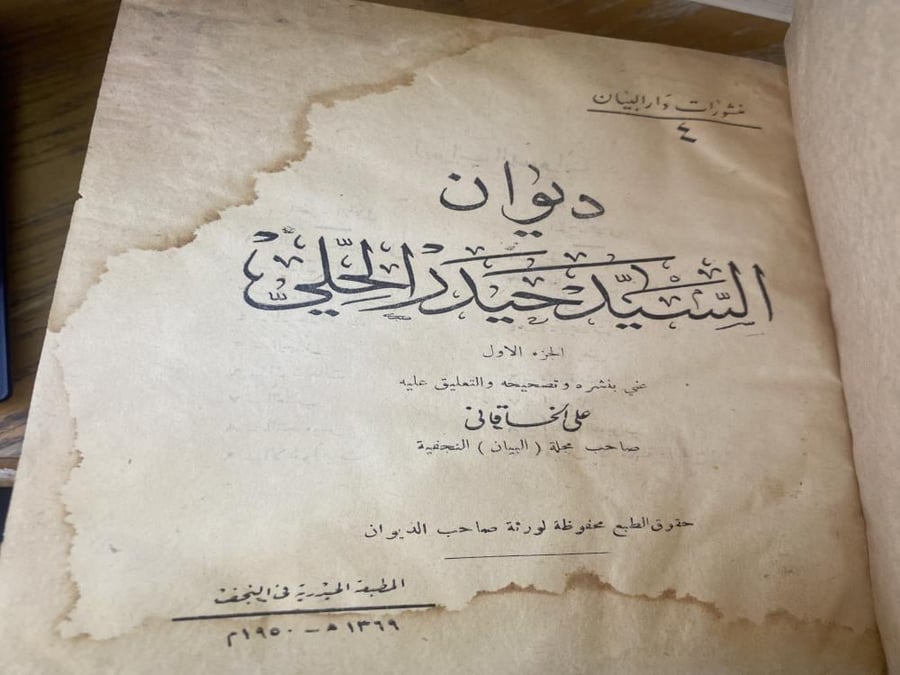 منشورات دار البيان
٤
ديوان
السَّيِّد حَيدَر الحِلِّيّ
الجزء الاول
عني بنشره وتصحيحه والتعليق عليه
علي الخاقاني
صاحب مجلة ( البيان ) النجفية
حقوق الطبع محفوظة لورثة صاحب الديوان
المطبعة الحيدرية في النجف
١٣٦٩ هـ – ١٩٥٠ م